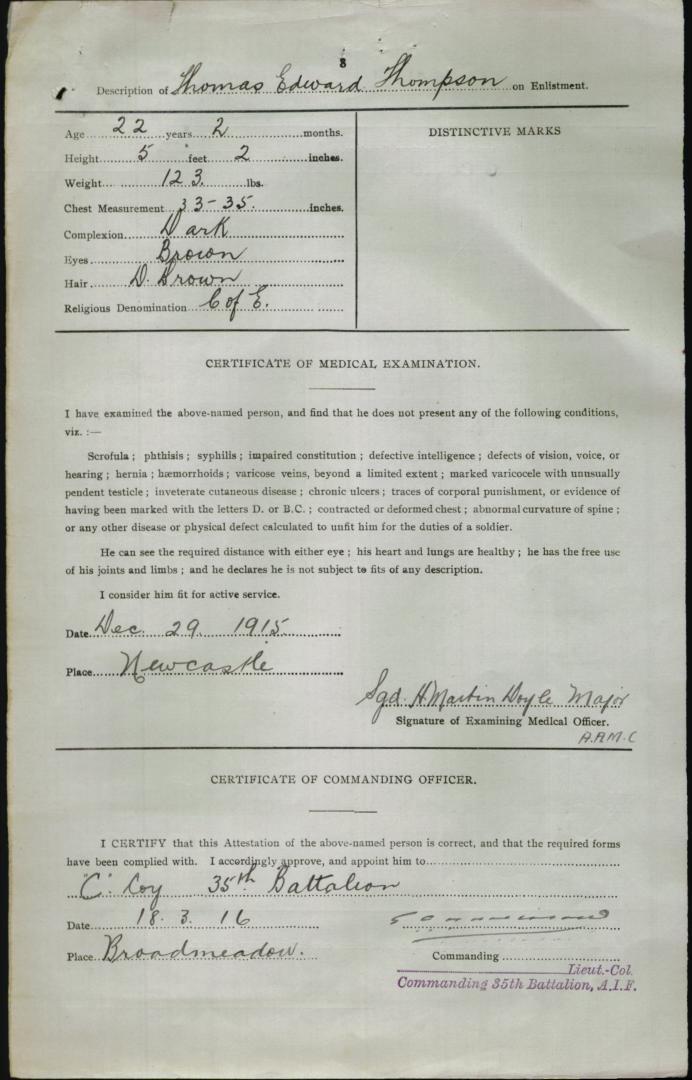 3
Description of Thomas Edward Thompson on Enlistment.
Age 22 years 2 months.
Height 5 feet 2 inches.
Weight 123 lbs.
Chest Measurement 33-35. inches.
Complexion Dark
Eyes Brown
Hair D. Brown
Religious Denomination C of E.
DISTINCTIVE MARKS
CERTIFICATE OF MEDICAL EXAMINATION.
I have examined the above-named person, and find that he does not present any of the following conditions,
viz. :—
Scrofula ; phthisis ; syphilis ; impaired constitution ; defective intelligence ; defects of vision, voice, or
hearing ; hernia ; hæmorrhoids ; varicose veins, beyond a limited extent ; marked varicocele with unusually
pendent testicle ; inveterate cutaneous disease ; chronic ulcers ; traces of corporal punishment, or evidence of
having been marked with the letters D. or B.C. ; contracted or deformed chest ; abnormal curvature of spine ;
or any other disease or physical defect calculated to unfit him for the duties of a soldier.
He can see the required distance with either eye ; his heart and lungs are healthy ; he has the free use
of his joints and limbs ; and he declares he is not subject to fits of any description.
I consider him fit for active service.
Date Dec. 29. 1915
Place Newcastle
Sgd. H Martin Doyle Major
Signature of Examining Medical Officer.
A.A.M.C
CERTIFICATE OF COMMANDING OFFICER.
I CERTIFY that this Attestation of the above-named person is correct, and that the required forms
have been complied with. I accordingly approve, and appoint him to
"C" Coy 35th Battalion
Date 18. 3. 16
Place Broadmeadow.
Commanding
Lieut.-Col.
Commanding 35th Battalion, A.I.F.